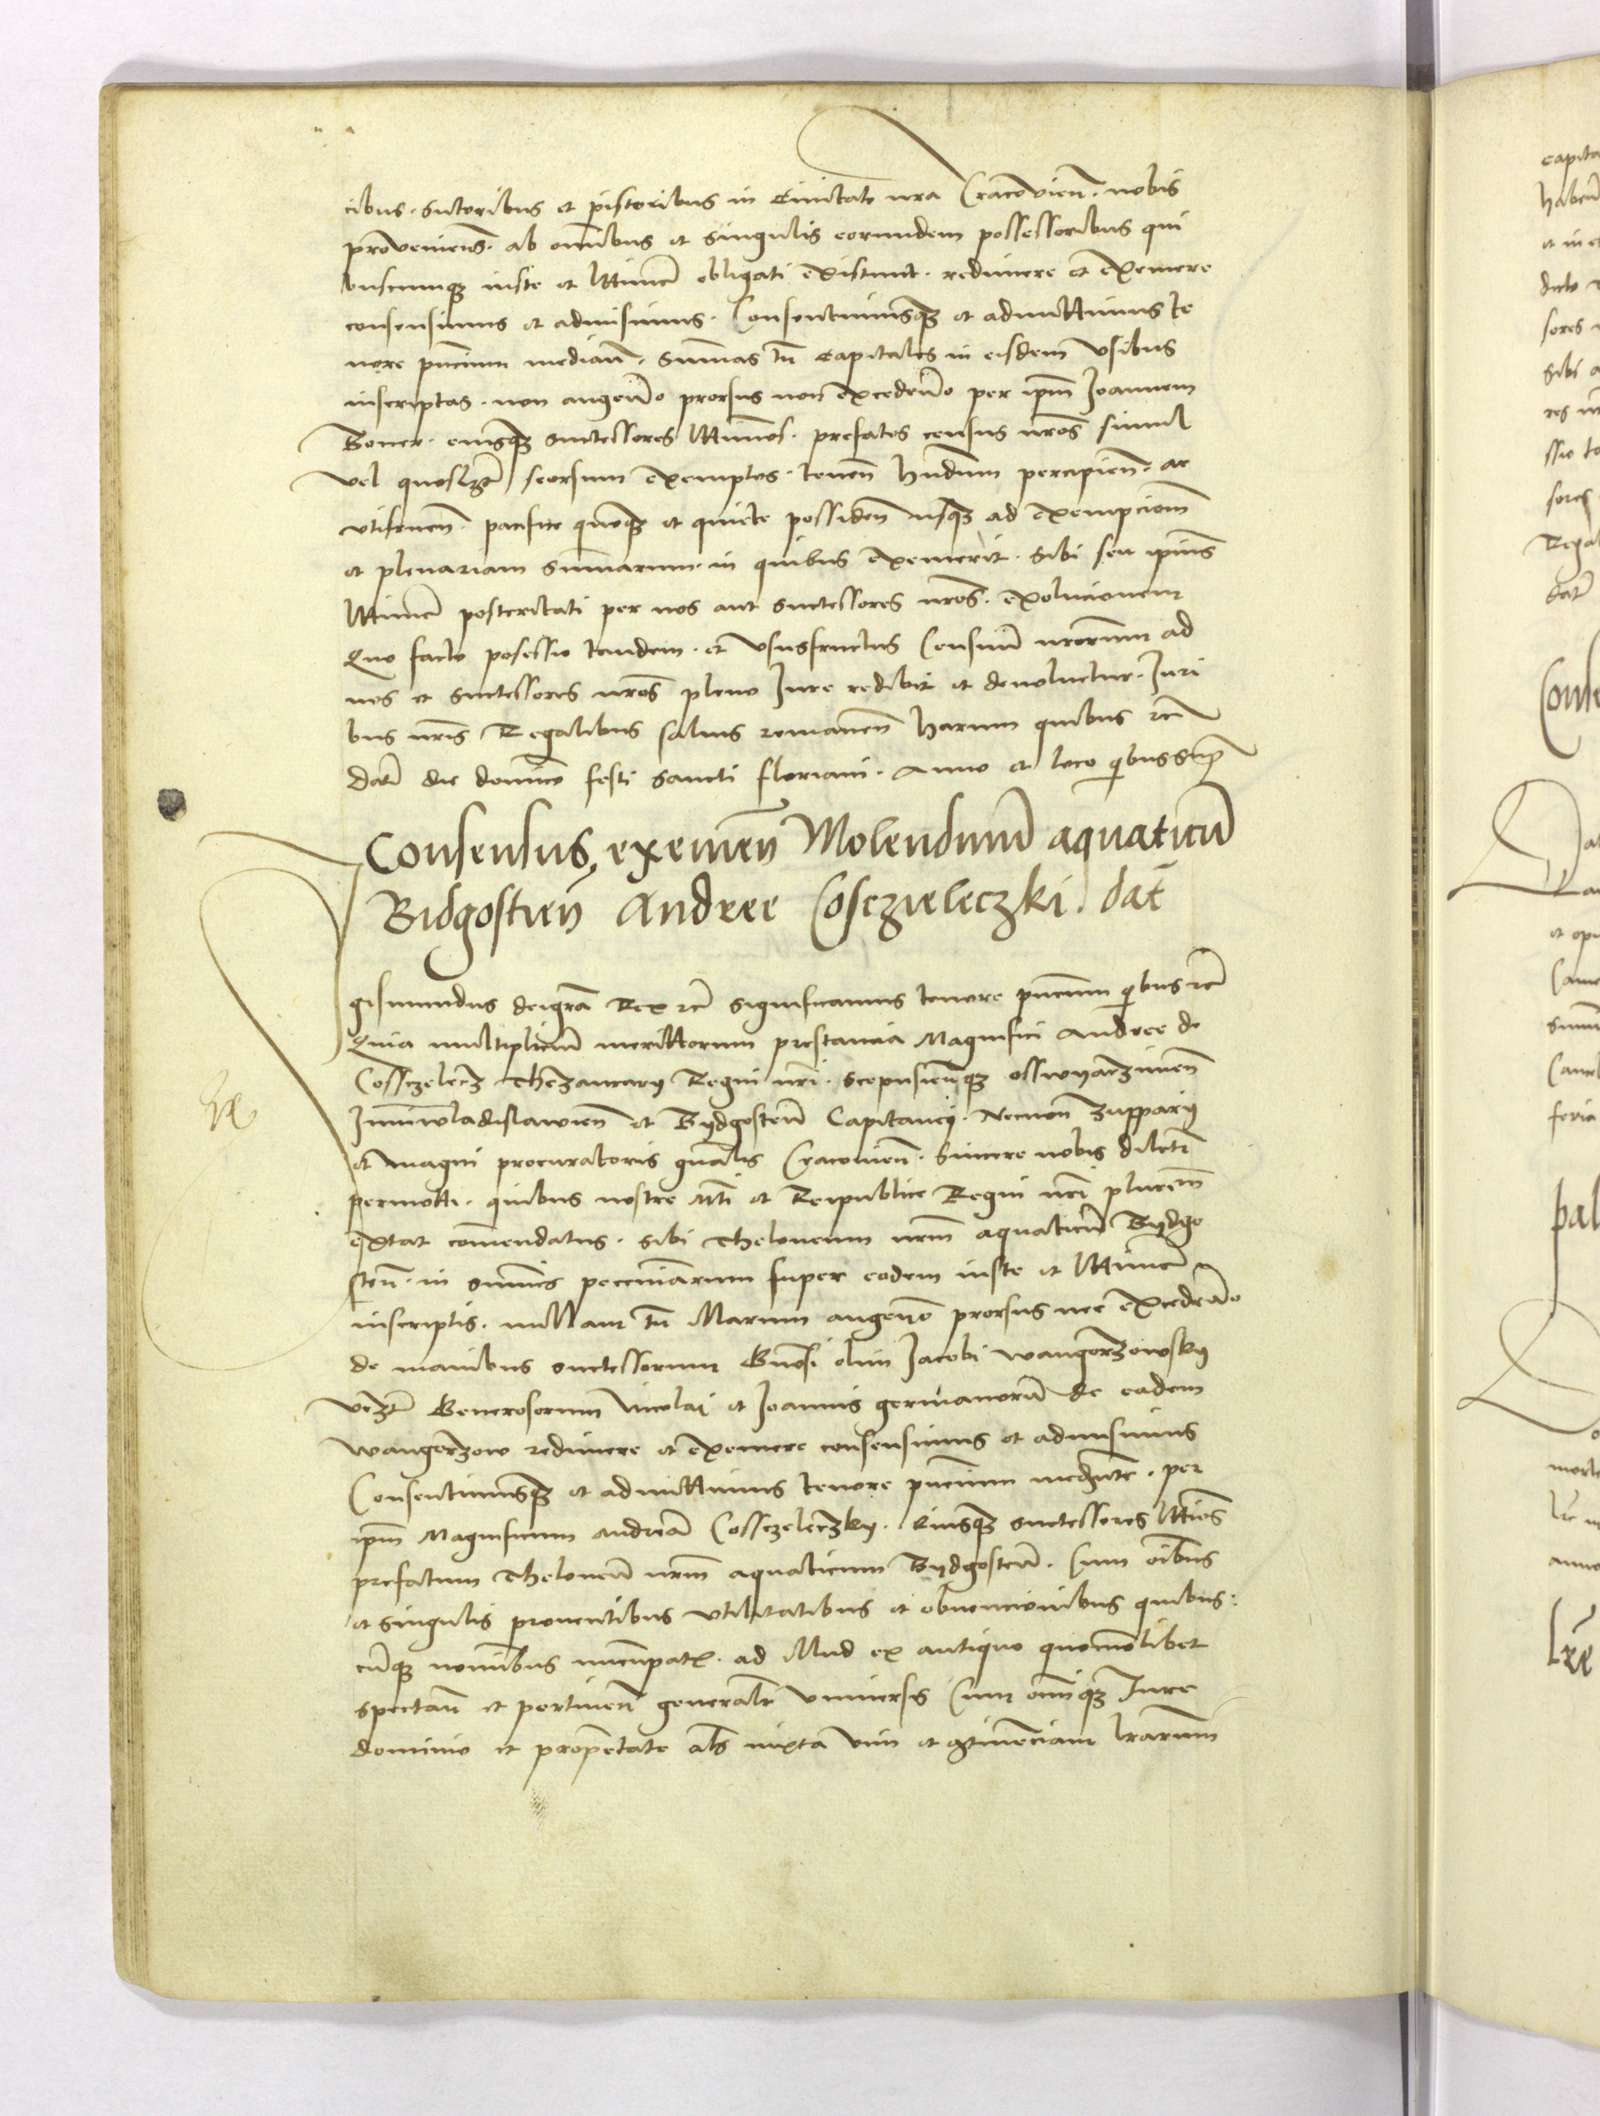 cibus. sutoribus et pistoribus in Civitate nra Cracovien. nobis
provenien. ab omibus et singulis eorundem possessoribus qui
buscumq iuste et lttime obligati existunt. redimere et exemere
consensimus et admisimus. Consentimusq et admittimus te
nore pncium median. summas tn Capitales in eisdem vsibus
inscriptas. non augendo prorsus non excedendo per ipm Joannem
Boner. eiusq successores lttimos. prefatos census nros simul
vel quoslzt seorsum exemptos. tenen hndum percipien. ac
vtifruen. pacifice quoq et quiete possiden usq ad exempcionem
et plenariam summarum. in quibus exemerit. sibi seu ipius
lttime posteritati per nos aut successores nros. exolucionem
Quo facto posessio tandem. et vsusfructus Censuum nrorum ad
nos et successores nros pleno Jure redibit et devoluetur. Juri
bus nris Regalibus saluis remanen harum quibus etc
Dat die dominico festi sancti floriani. Anno et loco quibus supra
Consensus exemen Molendinum aquaticum
Bidgostien Andree Cosczieleczki. dat
gismundus dei gra Rex etc significamus tenore pncium quibus etc
Quia multiplicum merittorum prestancia Magnifici Andree de
Cossczelecz Thezaurary Regni nri. Scepusienq osswyaczimen
Juniwladislawien et Bydgostien Capitanej. Necnon zuppary
et magni procuratoris gnalis Cracovien. Sincere nobis dilecti
permotti. quibus nostre Mti et Reipublice Regni nri plurimum
extat comendatus. sibi Theloneum nrm aquaticum Bydgo
stien. in summis pecuniarum super eodem iuste et lttime
inscriptis. nullam tn illarum augendo prorsus nec excedendo
de manibus successorum Gnosi olim Jacobi wangorzowsky
vzt Generosorum Nicolai et Joannis germanorum de eadem
wangorzow redimere et exemere consensimus et admisimus
Consentimusq et admittimus tenore pncium mediante. per
ipm Magnificum andream Cossczeleczky. Eiusq successores lttimos
prefatum Theloneum nrm aquaticum Bydgostien. Cum oibus
et singulis proventibus vtilitatibus et obvencionibus quibus:
cumq nominibus nuncupatis. ad illud ex antiquo quomodolibet
spectan et pertinen generaliter vniversis Cum omniq Jure
dominio et proprietate als iuxta vim et continenciam lrarum